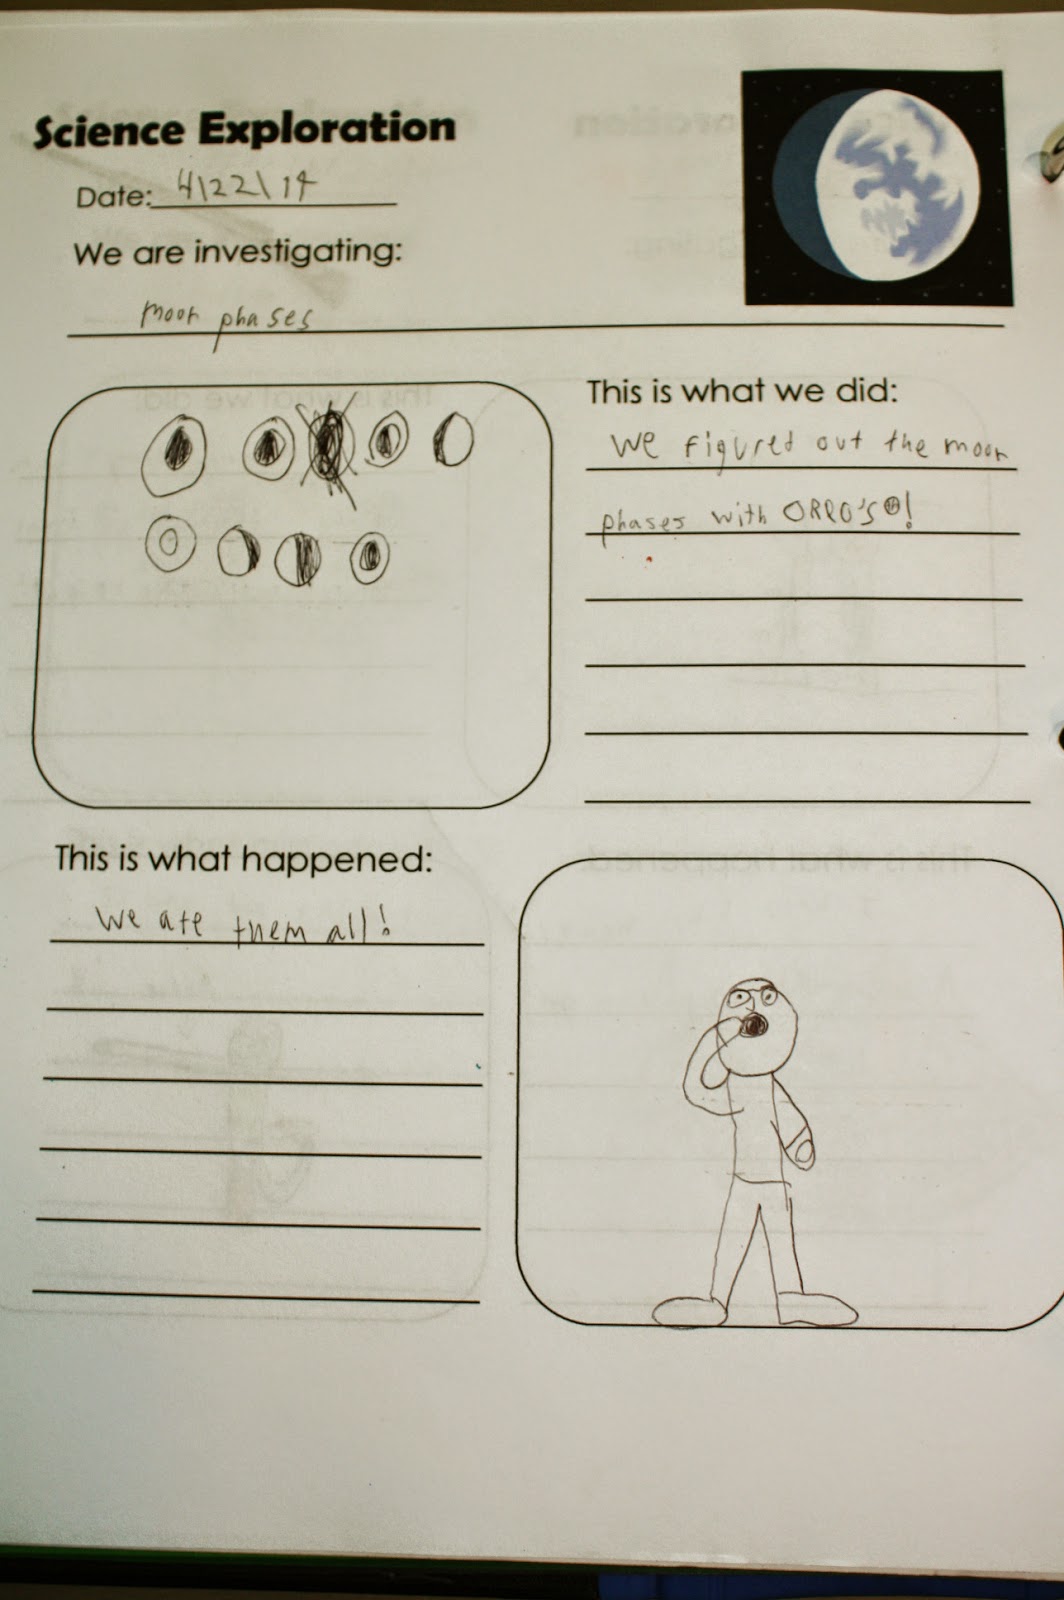 Science Exploration
Date: 4\22\14
We are investigating:
moon phases
This is what we did:
We figured out the moon
phases with OREO'S!
This is what happened:
We ate them all!